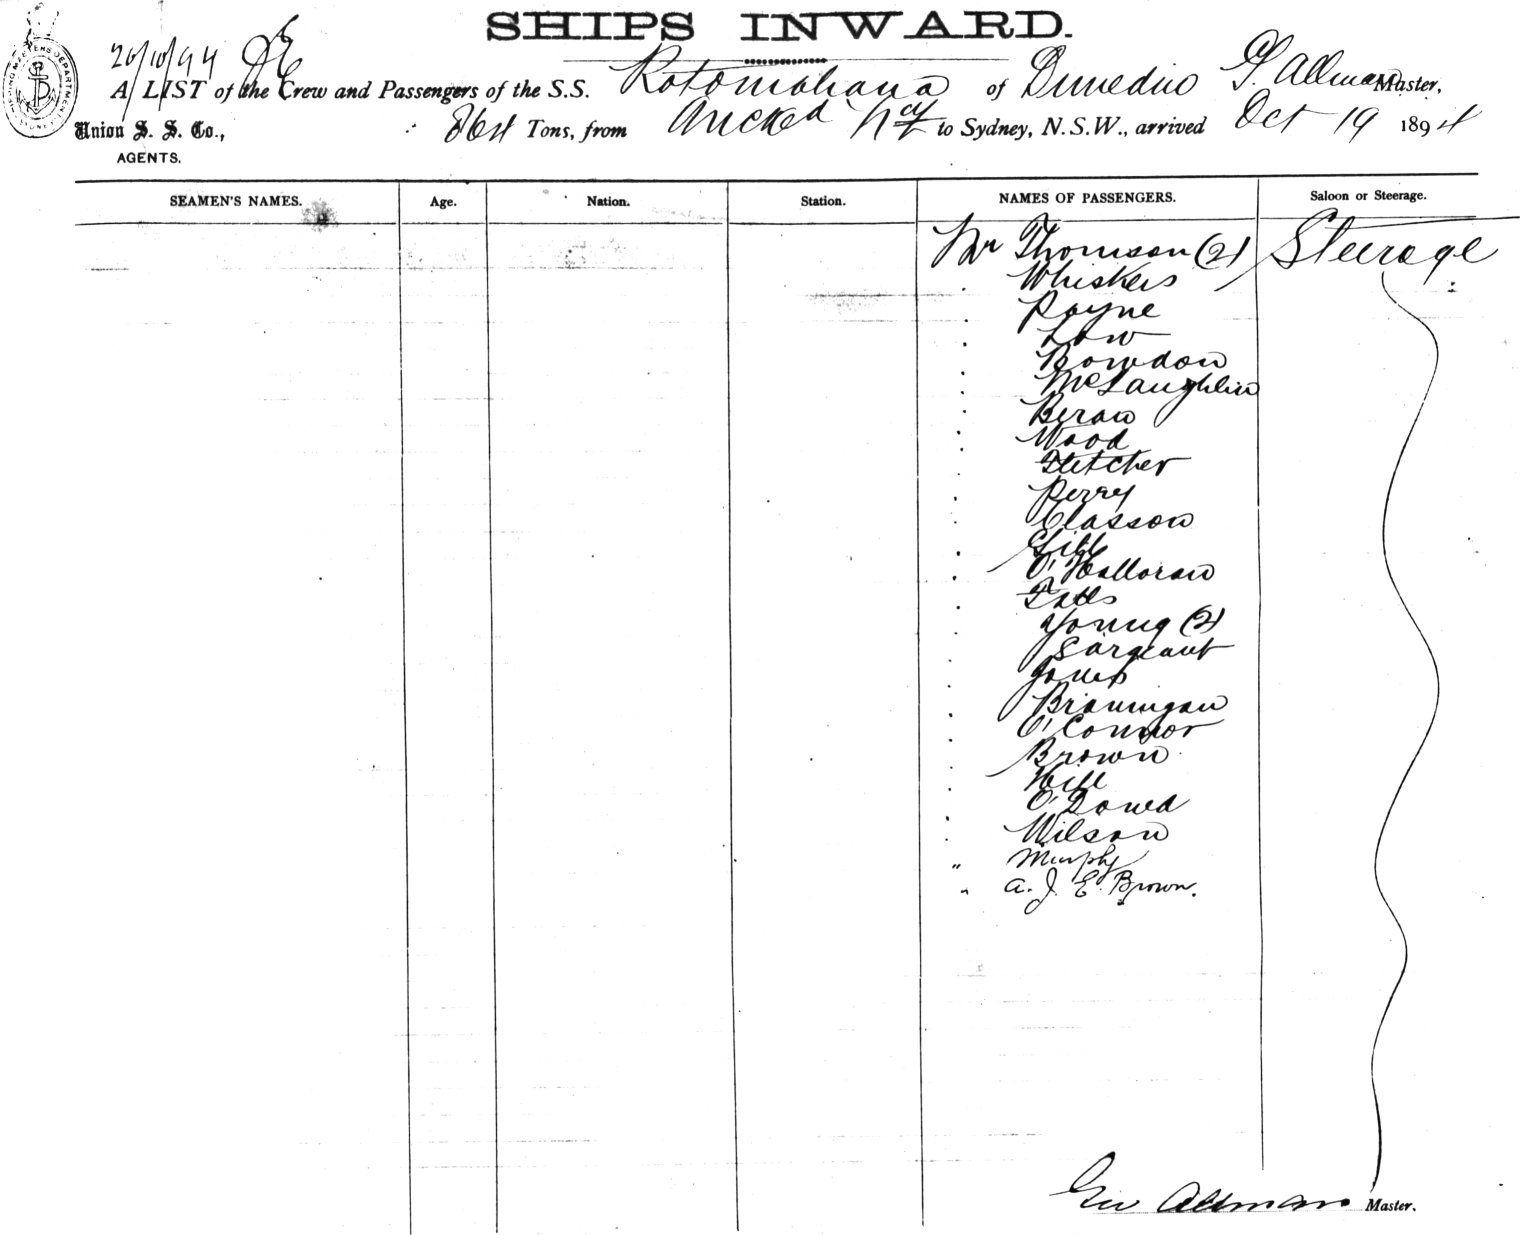 SHIPS INWARD.
20/10/94 JE
A LIST of the Crew and Passengers of the S.S. Rotomahana of Dunedin G. Allman Master,
Union S. S. Co., 864 Tons, from Auckd N Z to Sydney, N.S.W., arrived Oct 19 1894
AGENTS.
SEAMEN'S NAMES. Age. Nation. Station. NAMES OF PASSENGERS. Saloon or Steerage.
Mr Thomson (2) Steerage
Whiskers
Payne
Low
Bowdon
McLaughlin
Beran
Wood
Fletcher
Perry
Classon
Gill
O'Halloran
Young (2)
Sargeant
Jones
Brannigan
O'Connor
Brown
Hill
O'Dowd
Wilson
" Murphy
" A. J. E. Brown.
Geo Allman Master.